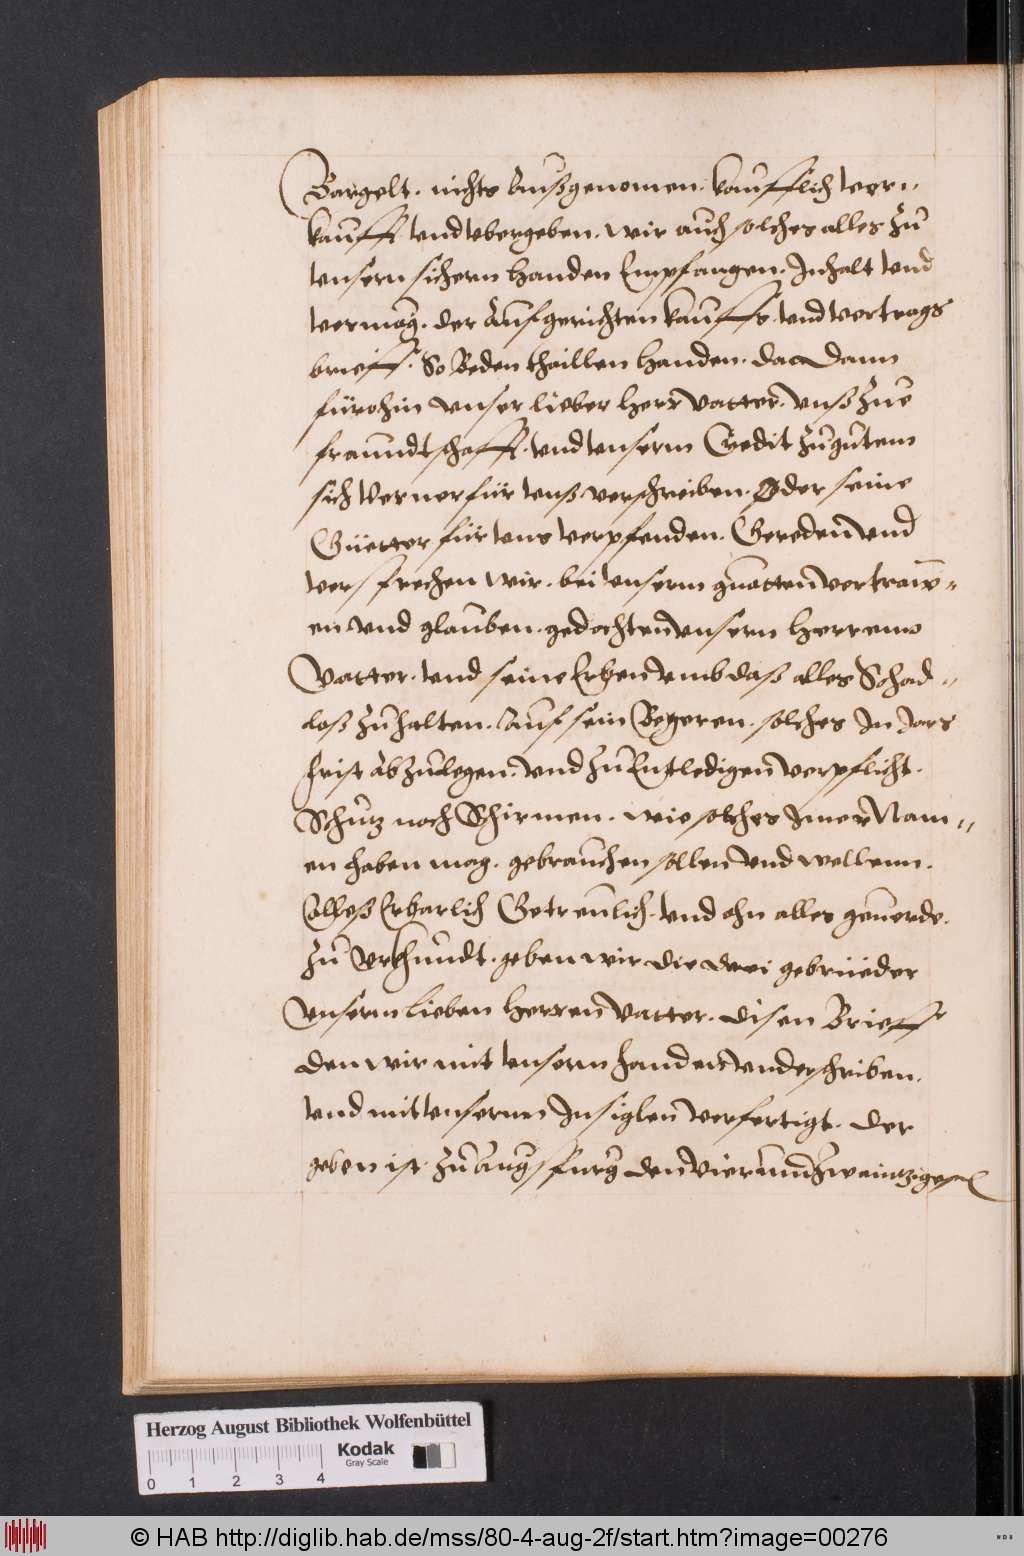 Bargelt. nichts Außgenomen. kaufflich ver„
kaufft. vnd vbergeben. wir auch solches alles Zu
vnsern sichern handen Empfangen. Inhalt vnd
vermög. der Aufgerichten kauffs. vnd vertrags
brieff. So Beden thaillen handen. da Dann
fürohin vnser lieber herr vatter. vnß Zue
fraundtschafft. vnd vnserm Credit Zu gutem
sich verner für vnß verschreiben. Oder seine
Güetter für vns verpfenden. Gereden vnd
versprechen wir. bei vnserm guatten vertraw„
en vnd glauben. gedachten vnsern herrenn
Vatter. vnd seine Erben vmb daß alles Schad„
loß Zu halten. Auf sein Begeren. solches In Jars
frist Ab Zu legen. vnd Zu Entledigen verpflicht.
Schutz noch Schirmen. wie solches Imer Nam„
en haben mag. gebrauchen sollen vnd wellenn.
Alleß Erbarlich Getreulich. vnd ohn alles geuerde.
Zu Vrkhundt. geben wir die drei gebrüeder
vnserm lieben herren vatter. disen Brieff
den wir mit vnsern handen vnderschriben.
vnd mit vnsernn Insiglen verfertigt. der
geben ist. Zu Augspurg den vier vnd Zwaintzigesten
Herzog August Bibliothek Wolfenbüttel
Kodak
Gray Scale
0 1 2 3 4
© HAB http://diglib.hab.de/mss/80-4-aug-2f/start.htm?image=00276